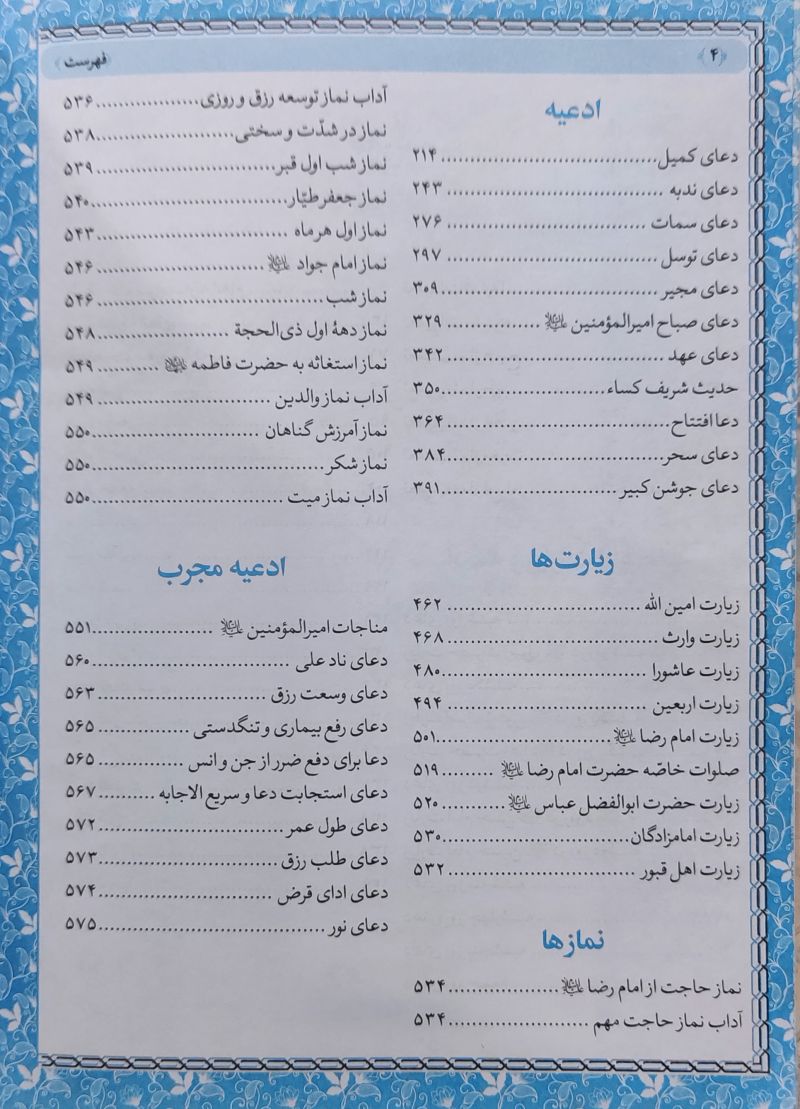 ۴
فهرست
ادعیه
دعای کمیل......................................۲۱۴
دعای ندبه ......................................۲۴۳
دعای سمات ...................................۲۷۶
دعای توسل ....................................۲۹۷
دعای مجیر......................................۳۰۹
دعای صباح امیرالمؤمنین علیه‌السلام ................۳۲۹
دعای عهد ......................................۳۴۲
حدیث شریف کساء............................۳۵۰
دعا افتتاح.......................................۳۶۴
دعای سحر......................................۳۸۴
دعای جوشن کبیر ..............................۳۹۱
زیارت‌ها
زیارت امین الله .................................۴۶۲
زیارت وارث ....................................۴۶۸
زیارت عاشورا ..................................۴۸۰
زیارت اربعین ..................................۴۹۴
زیارت امام رضا علیه‌السلام..............................۵۰۱
صلوات خاصّه حضرت امام رضا علیه‌السلام .........۵۱۹
زیارت حضرت ابوالفضل عباس علیه‌السلام...........۵۲۰
زیارت امامزادگان................................۵۳۰
زیارت اهل قبور ................................۵۳۲
نمازها
نماز حاجت از امام رضا علیه‌السلام...................۵۳۴
آداب نماز حاجت مهم ........................۵۳۴
آداب نماز توسعه رزق و روزی..................۵۳۶
نماز در شدّت و سختی........................۵۳۸
نماز شب اول قبر...............................۵۳۹
نماز جعفر طیّار..................................۵۴۰
نماز اول هر ماه .................................۵۴۳
نماز امام جواد علیه‌السلام.............................۵۴۶
نماز شب.......................................۵۴۶
نماز دههٔ اول ذی‌الحجة .......................۵۴۸
نماز استغاثه به حضرت فاطمه ...........۵۴۹
آداب نماز والدین ..............................۵۴۹
نماز آمرزش گناهان .............................۵۵۰
نماز شکر........................................۵۵۰
آداب نماز میت .................................۵۵۰
ادعیه مجرب
مناجات امیرالمؤمنین علیه‌السلام .....................۵۵۱
دعای ناد علی ..................................۵۶۰
دعای وسعت رزق .............................۵۶۳
دعای رفع بیماری و تنگدستی ................۵۶۵
دعا برای دفع ضرر از جن و انس ...............۵۶۵
دعای استجابت دعا و سریع الاجابه ..........۵۶۷
دعای طول عمر................................۵۷۲
دعای طلب رزق ...............................۵۷۳
دعای ادای قرض ..............................۵۷۴
دعای نور .......................................۵۷۵